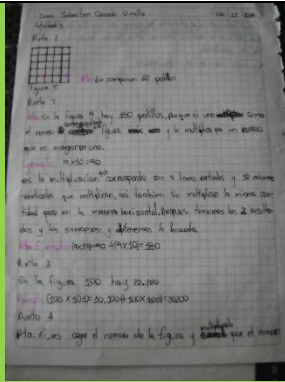 Juan Sebastian
Actividad 3
Punto 1
Rta: La componen 60 palillos
figura 5
Punto 2
En la figura 9 hay 180 palillos, porque si uno
el numero figura y lo multiplica por un numero
que es
9x10=90
es la multiplicacion que corresponde son 9 lineas verticales y 10
verticales que multiplican, asi tambien se multiplican la misma can-
tidad pero en la manera horizontal. Despues tenemos los 2 resulta-
dos y los sumamos y obtenemos lo buscado.
(9x10)=180
Punto 3
En la figura 100 hay 20.200
(100x101)=10.100+(100x101)=20200
Punto 4
Rta: es coger el numero de la figura y multiplicarlo por el numero